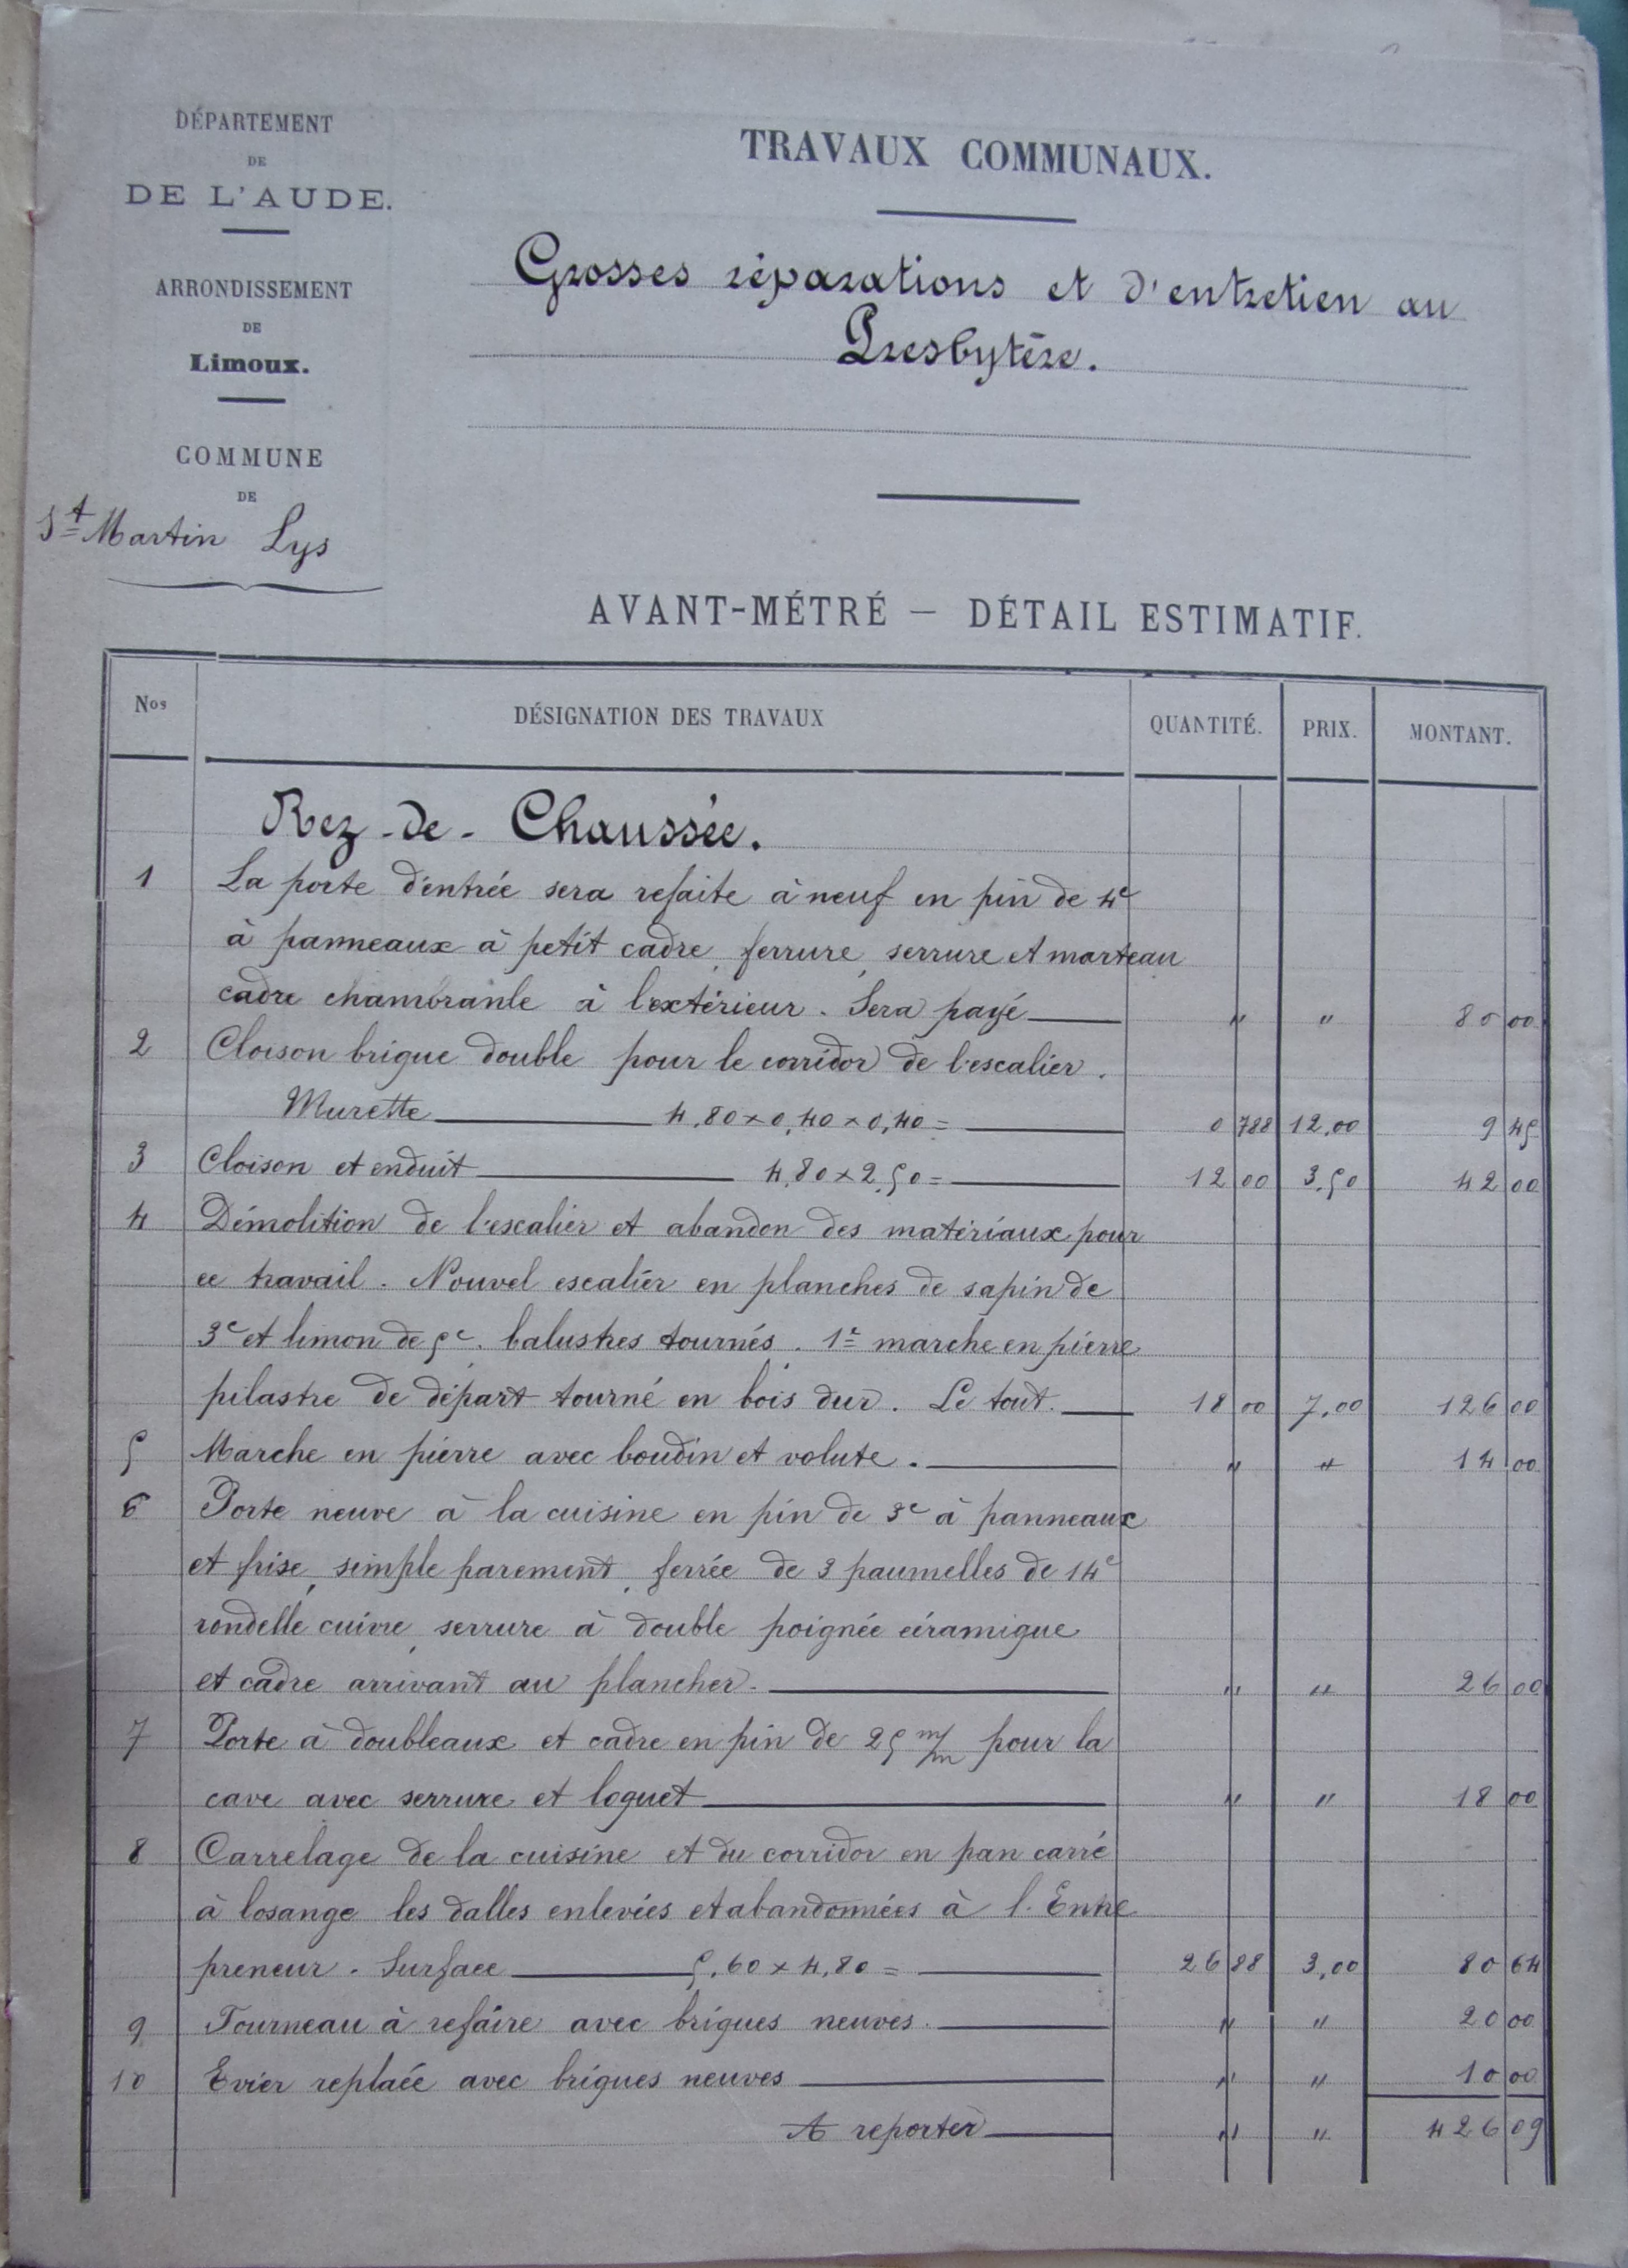 DÉPARTEMENT
DE
DE L'AUDE.
ARRONDISSEMENT
DE
Limoux.
COMMUNE
DE
St Martin Lys
TRAVAUX COMMUNAUX.
Grosses réparations et d'entretien au
Presbytère.
AVANT-MÉTRÉ — DÉTAIL ESTIMATIF.
Nos DÉSIGNATION DES TRAVAUX QUANTITÉ. PRIX. MONTANT.
Rez-de-Chaussée.
1 La porte d'entrée sera refaite à neuf en pin de 4c
à panneaux à petit cadre, ferrure, serrure et marteau
cadre chambranle à l'extérieur. Sera payé " " 80 00
2 Cloison brique double pour le corridor de l'escalier.
Murette 4,80 × 0,40 × 0,40 = 0 788 12,00 9 45
3 Cloison et enduit 4,80 × 2,50 = 12 00 3,50 42 00
4 Démolition de l'escalier et abandon des matériaux pour
ce travail. Nouvel escalier en planches de sapin de
3c et limon de 5c. balustres tournés. 1e marche en pierre
pilastre de départ tourné en bois dur. Le tout. 18 00 7,00 126 00
5 Marche en pierre avec boudin et volute. " " 14 00
6 Porte neuve à la cuisine en pin de 3c à panneaux
et frise, simple parement, ferrée de 3 paumelles de 14c
rondelle cuivre, serrure à double poignée céramique
et cadre arrivant au plancher. " " 26 00
7 Porte à doubleaux et cadre en pin de 25 m/m pour la
cave avec serrure et loquet " " 18 00
8 Carrelage de la cuisine et du corridor en pan carré
à losange les dalles enlevées et abandonnées à l'Entre
preneur. Surface 5,60 × 4,80 = 26 88 3,00 80 64
9 Fourneau à refaire avec briques neuves. " " 20 00
10 Evier replacé avec briques neuves " " 10 00
A reporter " " 426 09